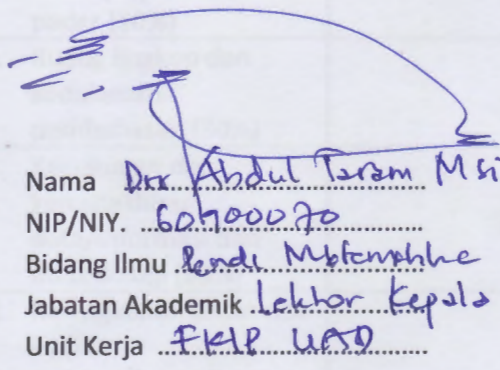 Nama Drs Abdul Taram MSi
NIP/NIY. 60900070
Bidang Ilmu Pendi Matematika
Jabatan Akademik Lektor Kepala
Unit Kerja FKIP UAD